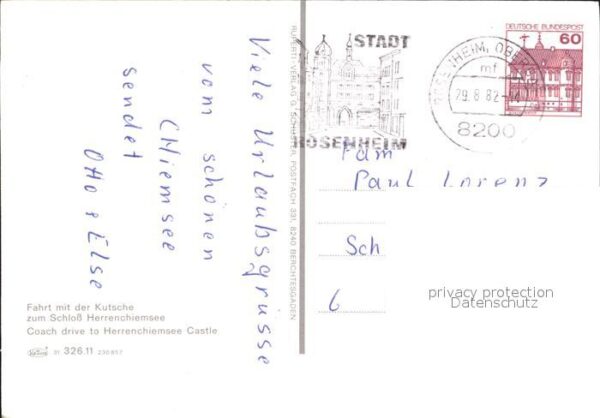 Viele Urlaubsgrüsse
vom schönen
Chiemsee
sendet
Otto & Else
Fahrt mit der Kutsche
zum Schloß Herrenchiemsee
Coach drive to Herrenchiemsee Castle
31 326.11 230857
HUBERTI-VERLAG G. SCHUSTER, POSTFACH 331, 8240 BERCHTESGADEN
STADT
ROSENHEIM
ROSENHEIM, OBERB
mf
29.8.82
8200
DEUTSCHE BUNDESPOST
60
Fam
Paul Lorenz
Sch
6
privacy protection
Datenschutz